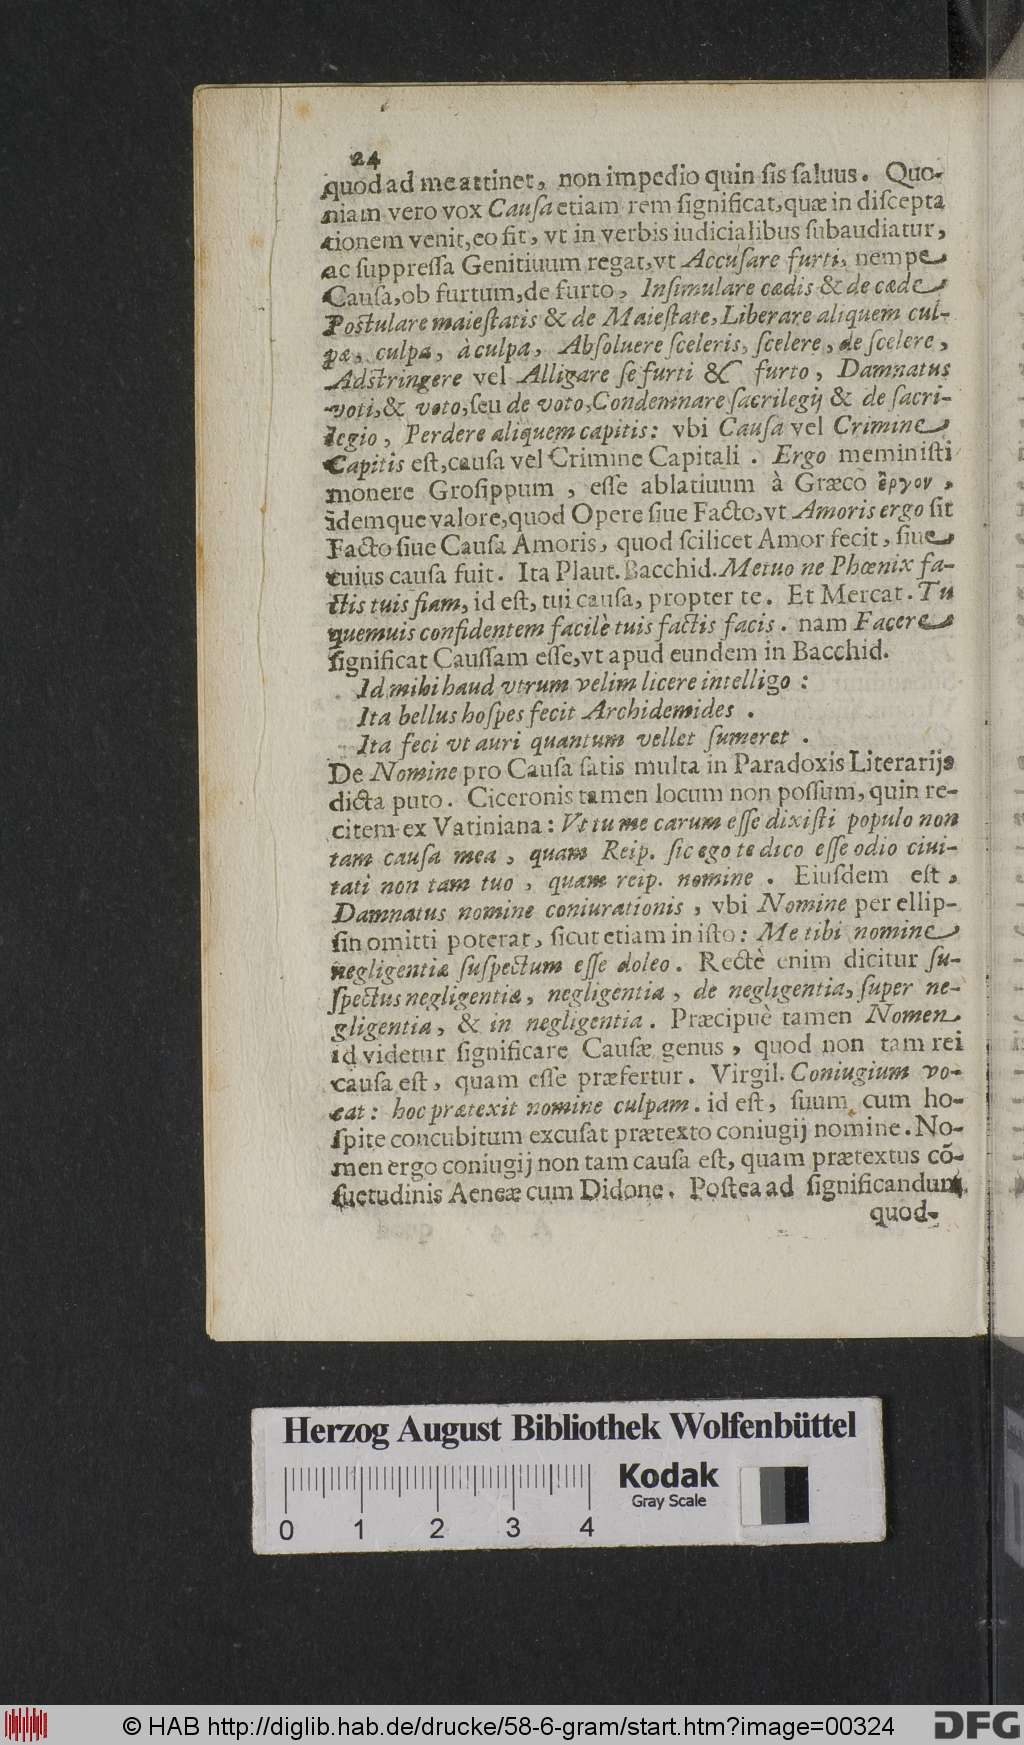 24
quod ad me attinet, non impedio quin sis saluus. Quo-
niam vero vox Causa etiam rem significat, quæ in discepta
tionem venit, eo fit, vt in verbis iudicialibus subaudiatur,
ac suppressa Genitiuum regat, vt Accusare furti, nempe
Causa, ob furtum, de furto, Insimulare cædis & de cæde
Postulare maiestatis & de Maiestate, Liberare aliquem cul-
pæ, culpa, à culpa, Absoluere sceleris, scelere, de scelere,
Adstringere vel Alligare se furti & furto, Damnatus
voti, & voto, seu de voto, Condemnare sacrilegij & de sacri-
legio, Perdere aliquem capitis: vbi Causa vel Crimine
Capitis est, causa vel Crimine Capitali. Ergo meministi
monere Grosippum, esse ablatiuum à Græco ἔργον,
idemque valore, quod Opere siue Facto, vt Amoris ergo sit
Facto siue Causa Amoris, quod scilicet Amor fecit, siue
cuius causa fuit. Ita Plaut. Bacchid. Metuo ne Phœnix fa-
ctis tuis fiam, id est, tui causa, propter te. Et Mercat. Tu
quemuis confidentem facilè tuis factis facis. nam Facere
significat Caussam esse, vt apud eundem in Bacchid.
Id mihi haud vtrum velim licere intelligo:
Ita bellus hospes fecit Archidemides.
Ita feci vt auri quantum vellet sumeret.
De Nomine pro Causa satis multa in Paradoxis Literarijs
dicta puto. Ciceronis tamen locum non possum, quin re-
citem ex Vatiniana: Vt tu me carum esse dixisti populo non
tam causa mea, quam Reip. sic ego te dico esse odio ciui-
tati non tam tuo, quam reip. nomine. Eiusdem est,
Damnatus nomine coniurationis, vbi Nomine per ellip-
sin omitti poterat, sicut etiam in isto: Me tibi nomine
negligentiæ suspectum esse doleo. Rectè enim dicitur su-
spectus negligentiæ, negligentia, de negligentia, super ne-
gligentia, & in negligentia. Præcipuè tamen Nomen
id videtur significare Causæ genus, quod non tam rei
causa est, quam esse præfertur. Virgil. Coniugium vo-
cat: hoc prætexit nomine culpam. id est, suum cum ho-
spite concubitum excusat prætexto coniugij nomine. No-
men ergo coniugij non tam causa est, quam prætextus cõ-
suetudinis Aeneæ cum Didone. Postea ad significandum
quod-
Herzog August Bibliothek Wolfenbüttel
0 1 2 3 4
Kodak
Gray Scale
© HAB http://diglib.hab.de/drucke/58-6-gram/start.htm?image=00324
DFG